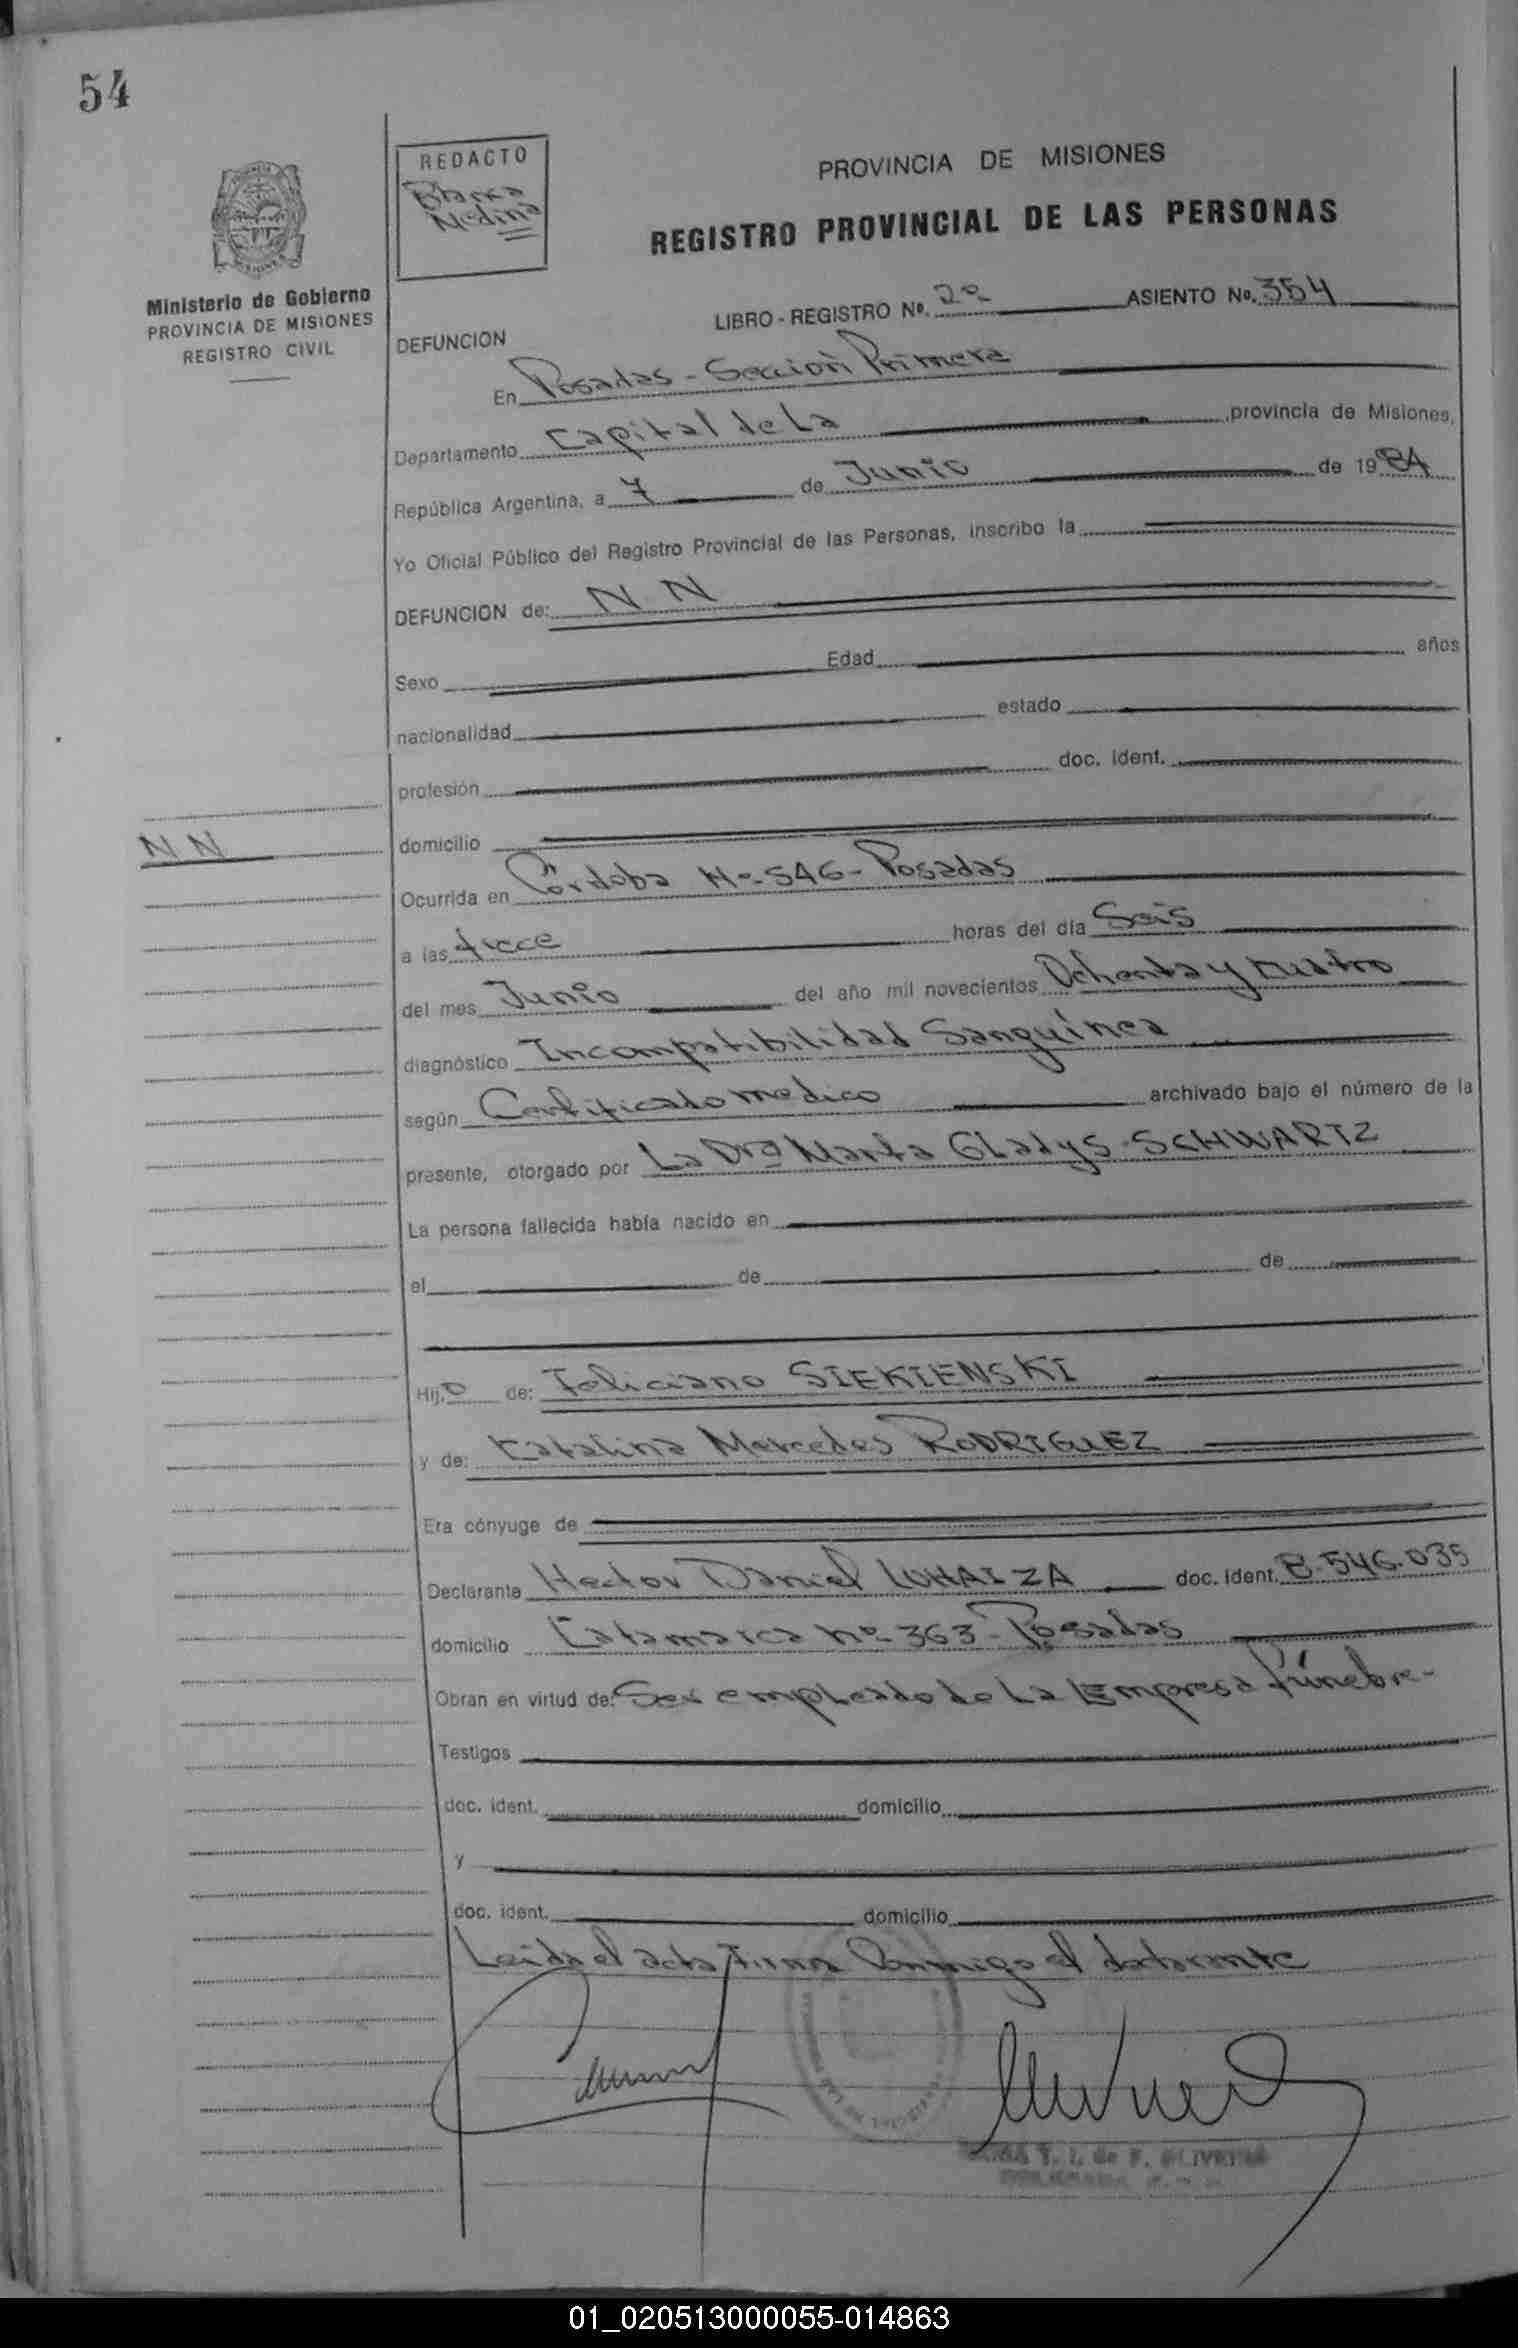 54
REDACTO
Blanca
Medina
PROVINCIA DE MISIONES
REGISTRO PROVINCIAL DE LAS PERSONAS
Ministerio de Gobierno
PROVINCIA DE MISIONES
REGISTRO CIVIL
LIBRO - REGISTRO Nº. 2º ASIENTO No. 354
DEFUNCION
En Posadas - Sección Primera
Departamento Capital de La provincia de Misiones,
República Argentina, a 7 de Junio de 1984
Yo Oficial Público del Registro Provincial de las Personas, inscribo la
DEFUNCION de: N N
Sexo Edad años
nacionalidad estado
profesión doc. ident.
N N
domicilio
Ocurrida en Córdoba Nº 546 - Posadas
a las trece horas del día Seis
del mes Junio del año mil novecientos Ochenta y cuatro
diagnóstico Incompatibilidad Sanguínea
según Certificado medico archivado bajo el número de la
presente, otorgado por La Dra Marta Gladys SCHWARTZ
La persona fallecida había nacido en
el de de
Hijo de: Feliciano SIEKIENSKI
y de: Catalina Mercedes RODRIGUEZ
Era cónyuge de
Declarante Hector Daniel doc. ident. 8.546.035
domicilio Catamarca nº 363 - Posadas
Obran en virtud de: Ser empleado de La Empresa fúnebre -
Testigos
doc. ident. domicilio
y
doc. ident. domicilio
Leida el acta Firma Conmigo el declarante
T. I. de F. OLIVEIRA
01_020513000055-014863